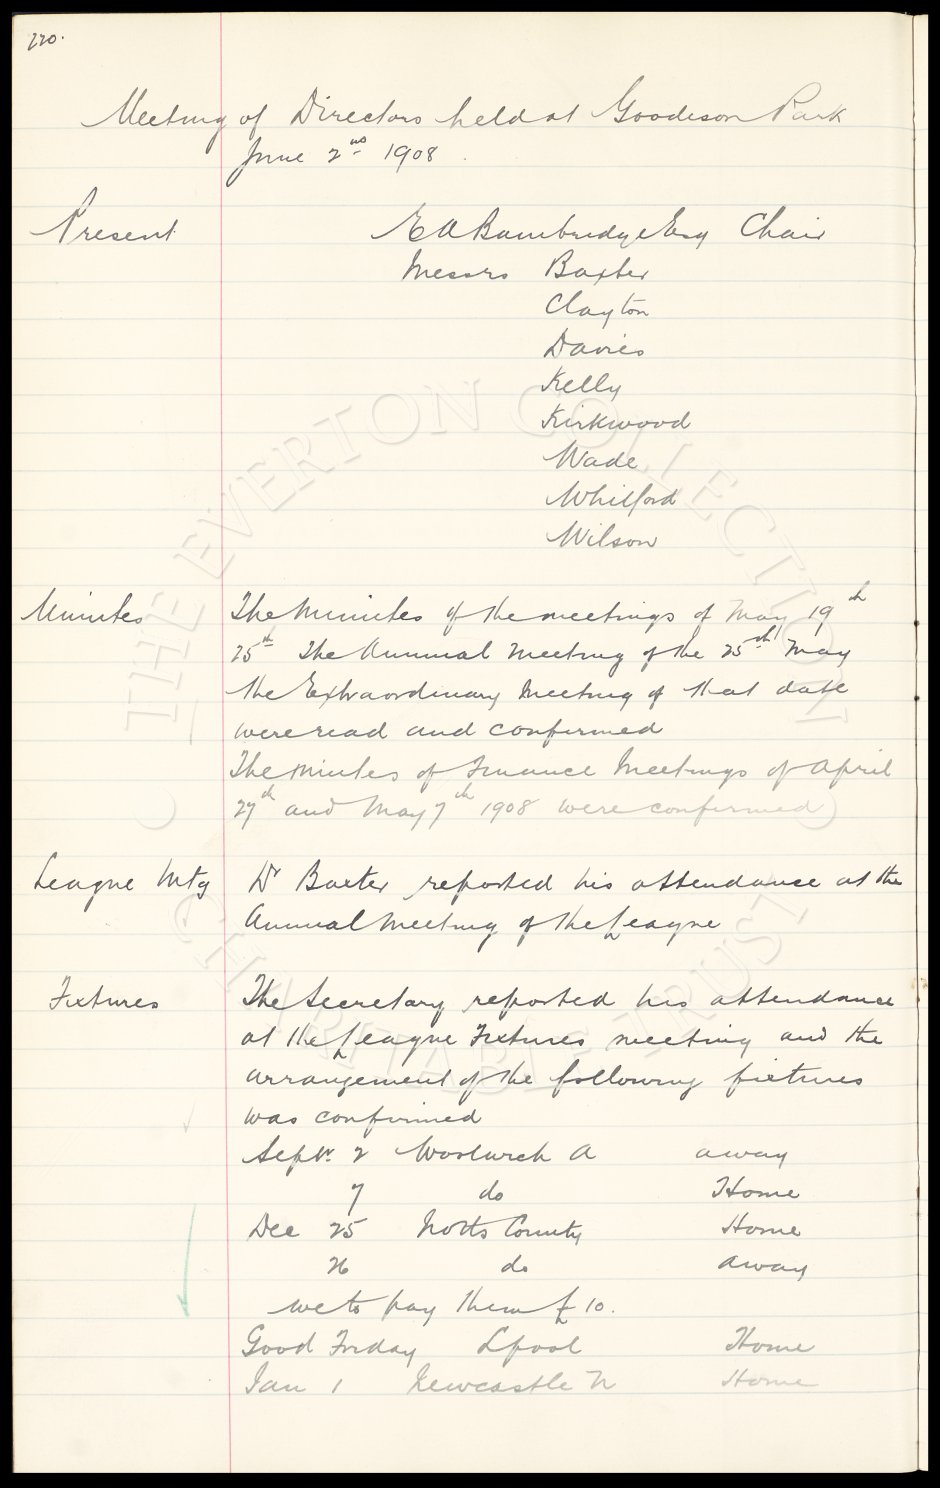 220.
Meeting of Directors held at Goodison Park
June 2nd 1908.
Present E A Bainbridge Esq Chair
Messrs Baxter
Clayton
Davies
Kelly
Kirkwood
Wade
Whitford
Wilson
Minutes The Minutes of the meetings of May 19th
25th The Annual Meeting of the 25th May
the Extraordinary Meeting of that date
were read and confirmed
The Minutes of Finance Meetings of April
27th and May 7th 1908 were confirmed
League Mtg Dr Baxter reported his attendance at the
Annual Meeting of the League
Fixtures The Secretary reported his attendance
at the League Fixtures meeting and the
arrangement of the following fixtures
was confirmed
Sepbr. 2 Woolwich A away
7 do Home
Dec 25 Notts County Home
26 do away
we to pay them £10.
Good Friday Lpool Home
Jan 1 Newcastle U Home
THE EVERTON COLLECTION
CHARITABLE TRUST